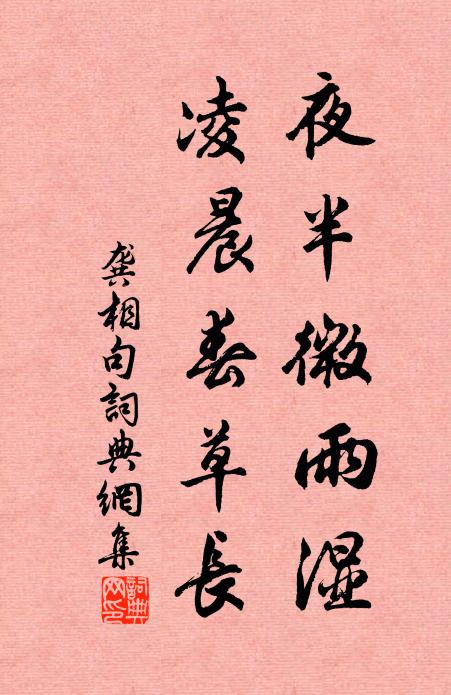 夜半微雨湿
凌晨春草長
龔相句詞典網集
詞典網印